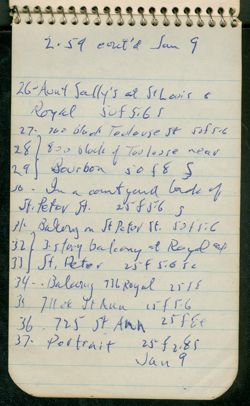 2.59 cont'd Jan 9
26- Aunt Sally's at St Louis &
Royal 50 f 5.6 S
27- 700 block Toulouse St 50 f 5.6
28 } 800 block of Toulouse near
29 } Bourbon 50 f 8 S
30- In a courtyard back of
St. Peter St. 25 f 5.6 S
31- Balcony on St Peter St. 50 f 5.6
32 } 3 story balcony at Royal &
33 } St. Peter 25 f 5.6
34- Balcony 736 Royal 25 f 8
35 711 St Ann 25 f 5.6
36. 725 St Ann 25 f 8
37- Portrait 25 f 2.8 S
Jan 9